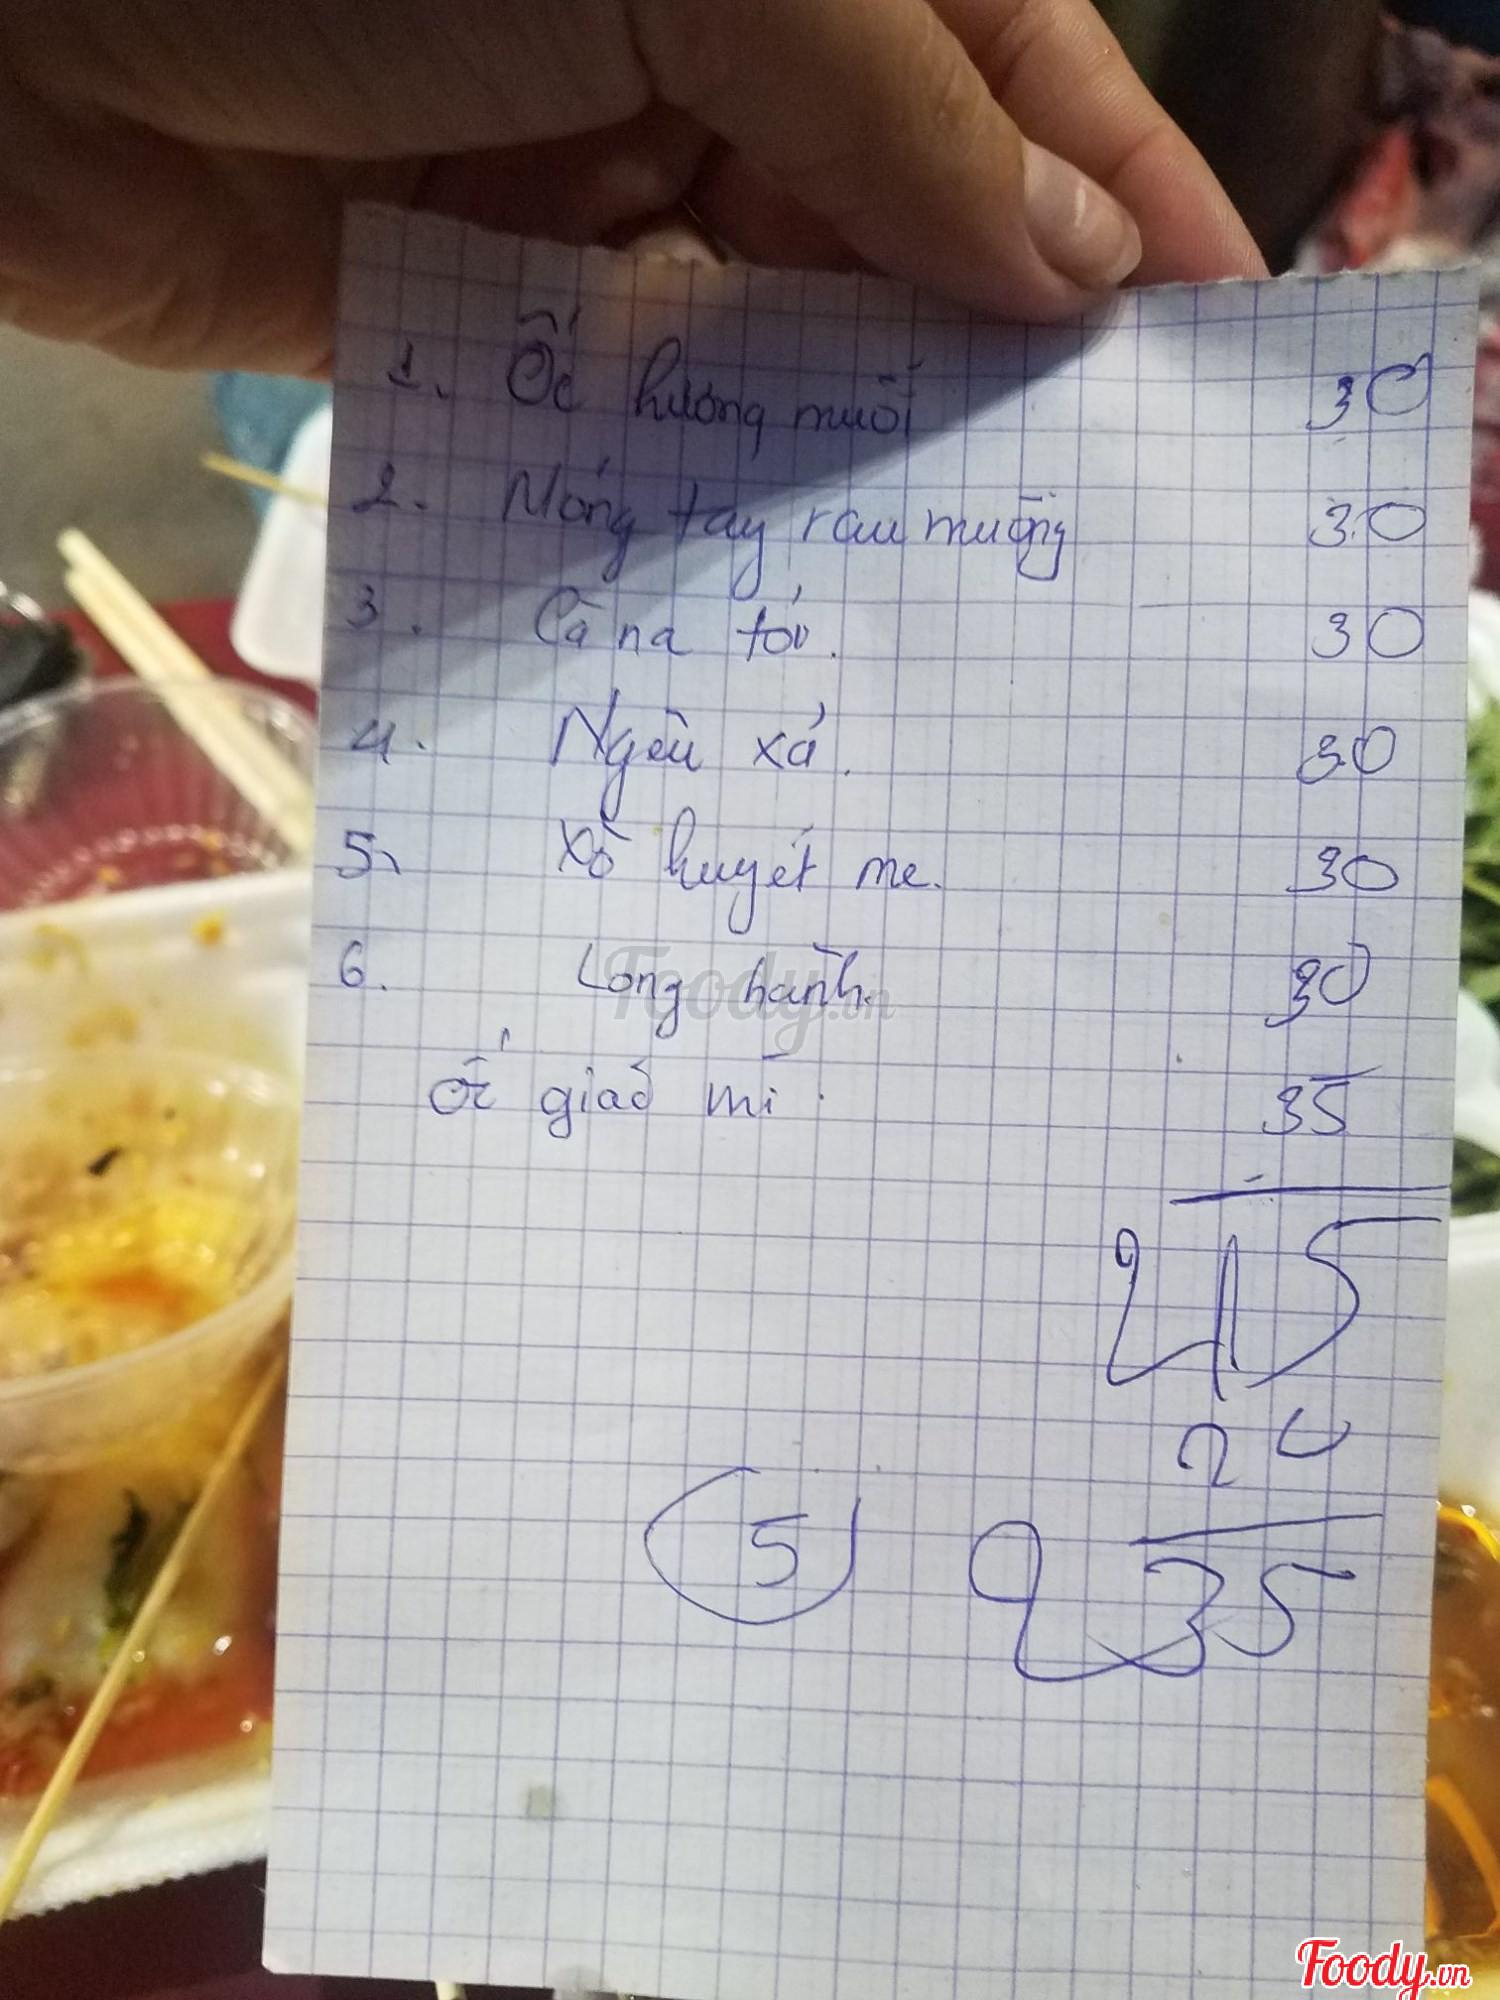 1. Ốc hương muối 30
2. Móng tay rau muống 30
3. Cà na tỏi. 30
4. Nghêu xả. 30
5. Xò huyết me. 30
6. Long hành. 30
Ốc giác mì. 35
215
20
5 235
Foody.vn
Foody.vn